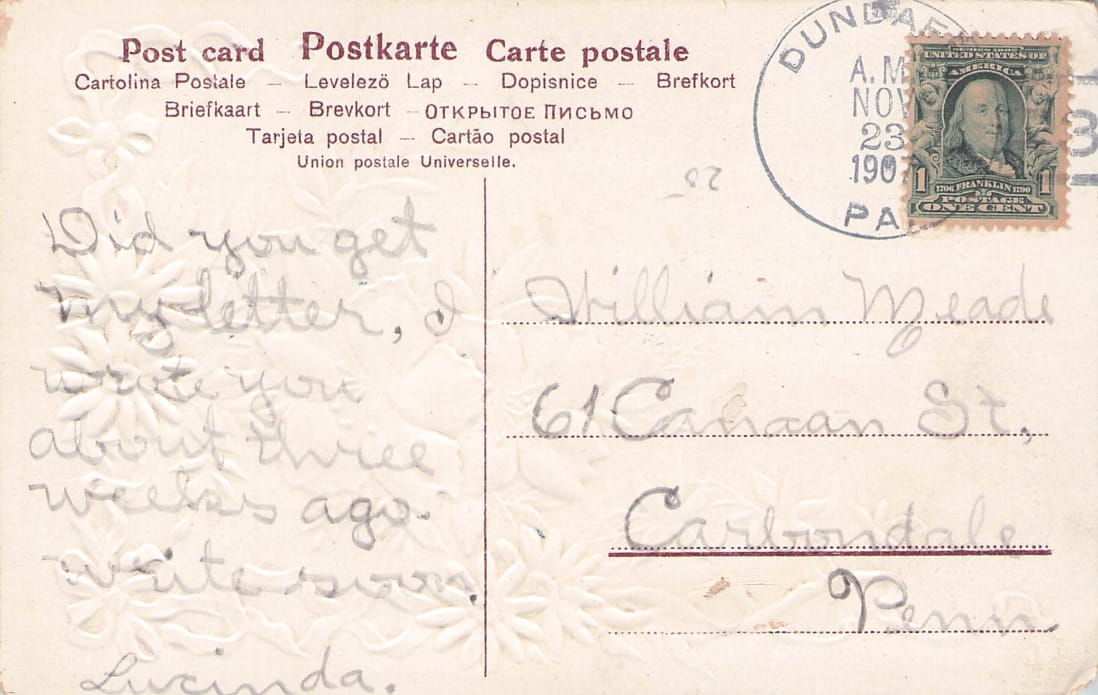 Post card Postkarte Carte postale
Cartolina Postale — Levelező Lap — Dopisnice — Brefkort
Briefkaart — Brevkort — Открытое письмо
Tarjeta postal — Cartão postal
Union postale Universelle.
A.M
NOV
23
190
PA
SERIES 1902
UNITED STATES OF
AMERICA
1706 FRANKLIN 1790
1 POSTAGE 1
ONE CENT
3
Did you get
my letter, I
wrote you
about three
weeks ago.
write soon,
Lucinda.
William Meade
61 Canaan St,
Carbondale
Penn.